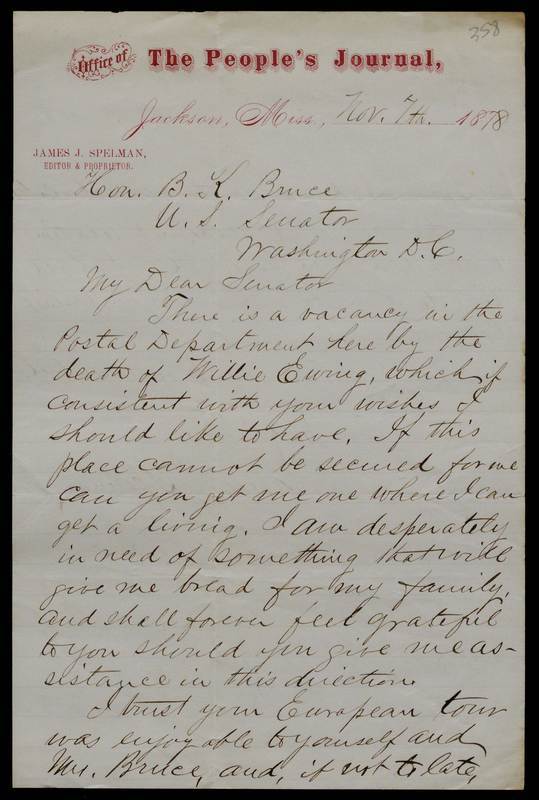 358
Office of The People's Journal,
Jackson, Miss., Nov. 7th. 1878
JAMES J. SPELMAN,
EDITOR & PROPRIETOR.
Hon. B. K. Bruce
U. S. Senator
Washington D. C.
My Dear Senator
There is a vacancy in the
Postal Department here by the
death of Willie Ewing, which if
consistent with your wishes I
should like to have. If this
place cannot be secured for me
can you get me one where I can
get a living. I am desperately
in need of something that will
give me bread for my family,
and shall forever feel grateful
to you should you give me as-
sistance in this direction.
I trust your European tour
was enjoyable to yourself and
Mrs. Bruce, and, if not to late,